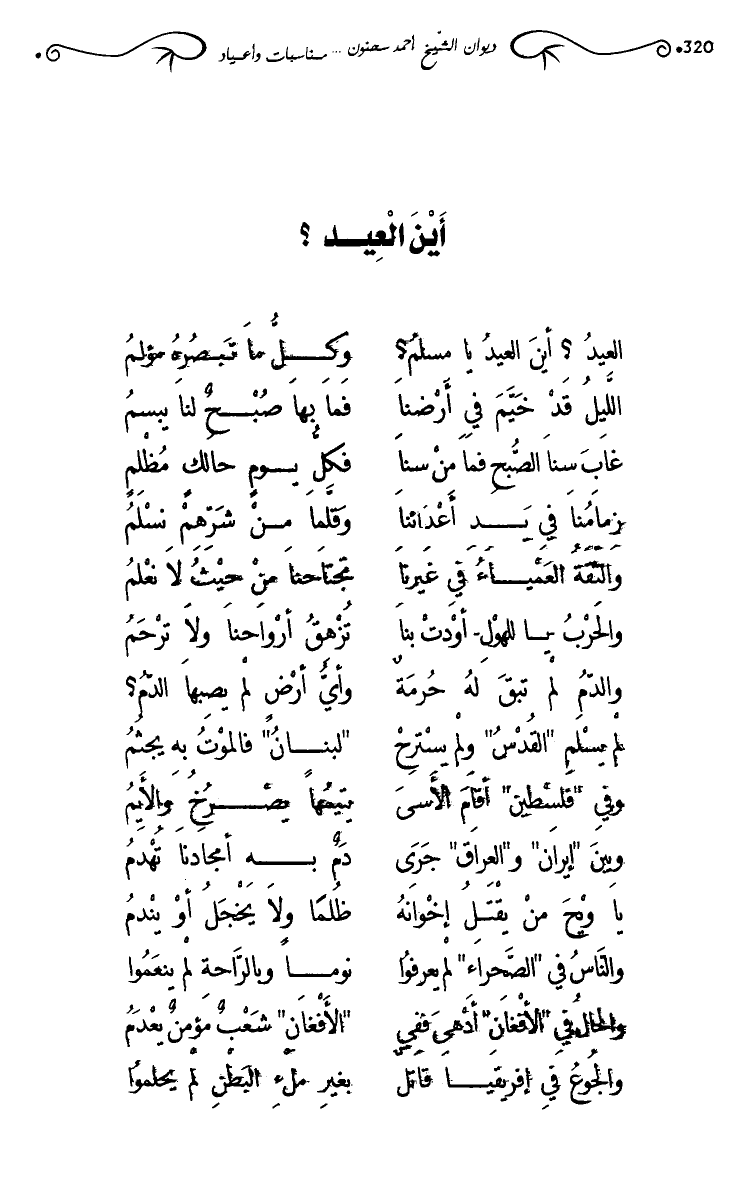 320 ديوان الشّيخ أحمد سحنون ... مناسبات وأعياد
أَيْنَ الْعِيد ؟
العيدُ ؟ أينَ العيدُ يا مسلمُ؟ وكلُّ ما تَبصُرُهُ مؤلمُ
اللَّيلُ قَدْ خَيَّمَ في أَرْضنا فَما بِها صُبْحٌ لنا يبسمُ
غابَ سنا الصُّبحِ فما مِنْ سنا فكلُّ يومٍ حالكٍ مُظْلمِ
زِمامُنا في يَدِ أَعْدَائنا وَقلَّما مِنْ شَرّهِمْ نسْلَمُ
والثّقَةُ العَمْياءُ في غيرنا تجتاحنا مِنْ حيْثُ لاَ نعْلمُ
والحَرْبُ - يا للهوْلِ- أوْدتْ بنا تُزْهِقُ أرْواحنا ولاَ ترْحَمُ
والدّمُ لم تبقَ لهُ حُرمَةٌ وأيُّ أرْضٍ لمْ يصبها الدّمُ؟
لمْ يسْلَمِ "القُدْسُ" ولمْ يسْترحْ "لبنانُ" فالموْتُ بهِ يجثُمُ
وفي "فلسْطين" أقَامَ الأَسىَ يتيمُها يصْرُخُ والأيّمُ
وبينَ "إيران" و"العراق" جَرَى دَمٌ بهِ أمجادنا تُهْدمُ
يا ويْحَ منْ يقْتَلُ إخْوانَهُ ظُلمًا ولاَ يخْجَلُ أوْ يندمُ
والنّاسُ في "الصَّحراء" لم يعرفوُا نومًا وبالرَّاحةِ لمْ ينعَمُوا
والحالُ في "الأفْغَانِ" أدْهىَ فَفِي "الأفْغَانِ" شَعْبٌ مؤمنٌ يعْدَمُ
والجُوعُ في إفريقيا قاتل بغيرِ ملْءِ البَطْنِ لمْ يحلموُا